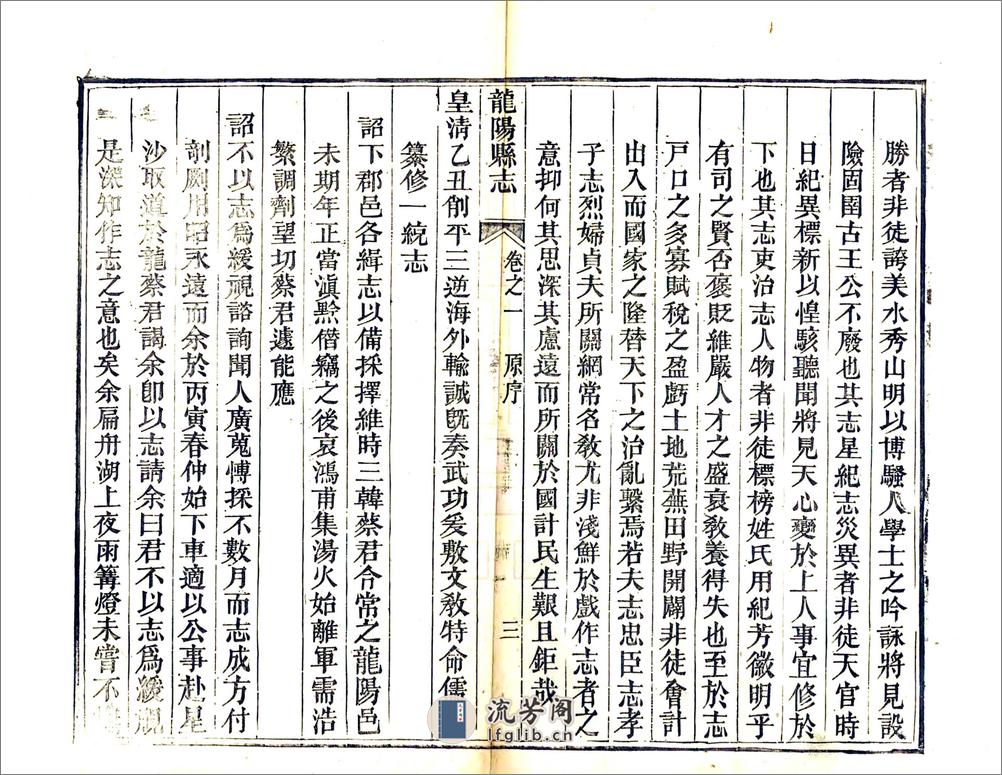 勝者非徒誇美水秀山明以博騷人學士之吟詠將見設
險固圉古王公不廢也其志星紀志災異者非徒天官時
日紀異標新以惶駭聽聞將見天心變於上人事宜修於
下也其志吏治志人物者非徒標榜姓氏用紀芳徽明乎
有司之賢否褒貶維嚴人才之盛衰敎養得失也至於志
戸口之多寡賦稅之盈虧土地荒蕪田野開闢非徒會計
出入而國家之隆替天下之治亂繫焉若夫志忠臣志孝
子志烈婦貞夫所關綱常名敎尤非淺鮮於戲作志者之
意抑何其思深其慮遠而所關於國計民生艱且鉅哉
龍陽縣志
卷之一 原序 三
皇淸乙丑削平三逆海外輸誠旣奏武功爰敷文敎特命儒
纂修一統志
詔下郡邑各緝志以備採擇維時三韓蔡君令常之龍陽邑
未期年正當滇黔僭竊之後哀鴻甫集湯火始離軍需浩
繁調劑望切蔡君遽能應
詔不以志爲緩視諮詢聞人廣蒐慱採不數月而志成方付
剞劂用昭永遠而余於丙寅春仲始下車適以公事赴星
沙取道於龍蔡君謁余卽以志請余曰君不以志爲緩視
是深知作志之意也矣余扁舟湖上夜雨篝燈未嘗不
流芳阁
lfglib.cn